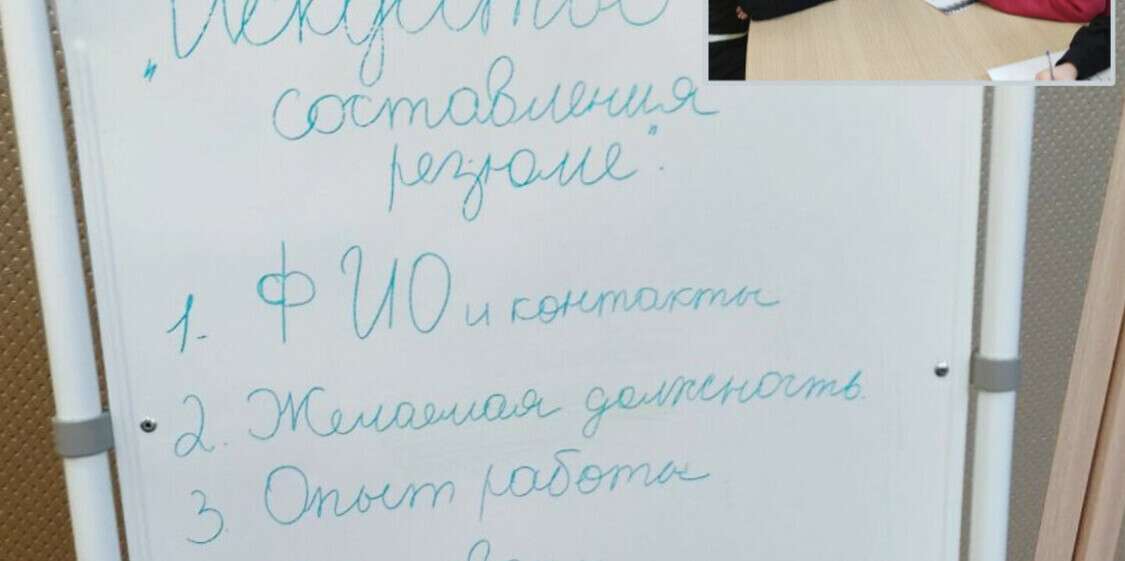 „Искусство
составления
резюме".
1. ФИО и контакты
2. Желаемая должность.
3. Опыт работы